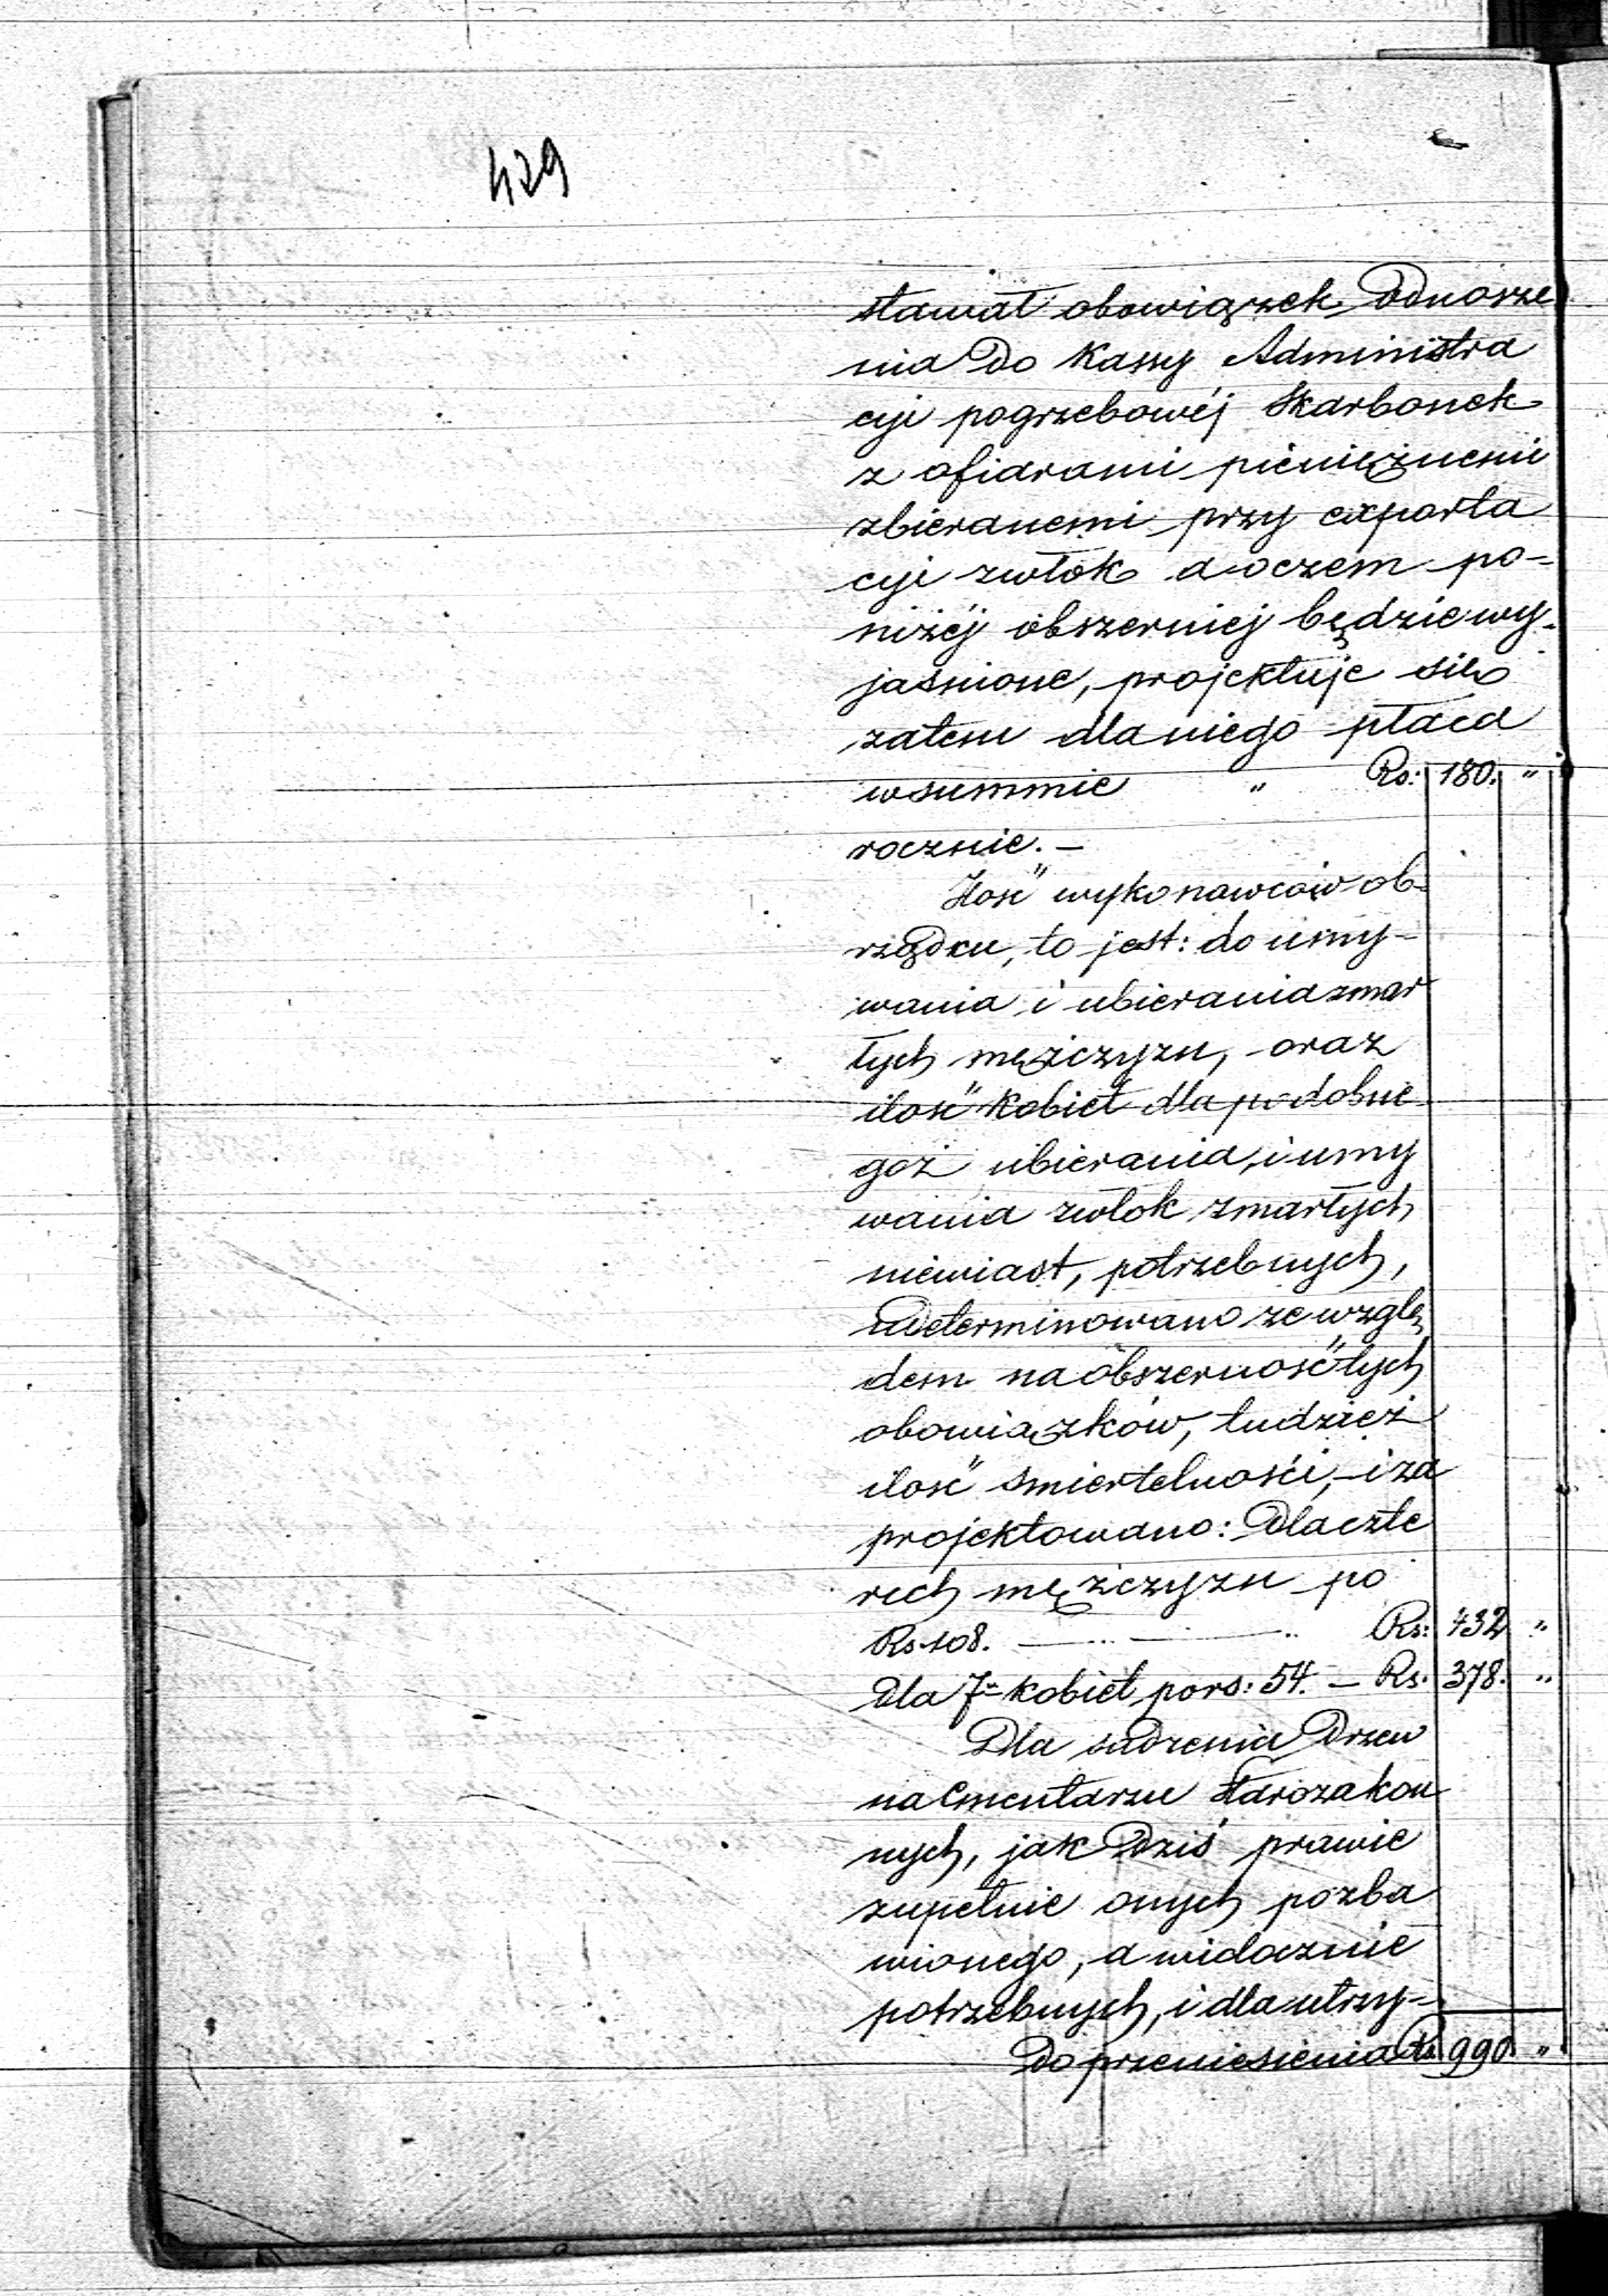 429
stawał obowiązek odnosze
nia do Kassy Administra
cyi pogrzebowéj Skarbonek
z ofiarami pieniężnemi
zbieranemi przy exporta
cyi zwłok a oczem po-
niżéj obszerniej będzie wy-
jaśnione, projektuje się
zatem dla niego płaca
w summie " Rs: 180. "
rocznie. –
Ilość wykonawców ob-
rządku, to jest: do umy-
wania i ubierania zmar
łych mężczyzn, oraz
ilość kobiet dla podobne
goż ubierania, i umy
wania zwłok zmarłych
niewiast, potrzebnych,
determinowano ze wzglę
dem na obszerność tych
obowiązków, tudzież
ilość śmiertelności, i za
projektowano: Dla czte
rech mężczyzn po
Rs 108. — " — " Rs: 432 "
Dla 7– kobiet po rs: 54. – Rs. 378. "
Dla sadzenia Drzew
na Cmentarzu Starozakon
nych, jak Dziś prawie
zupełnie onych pozba
wionego, a widocznie
potrzebnych, i dla utrzy-
Do przeniesienia Rs 990 "